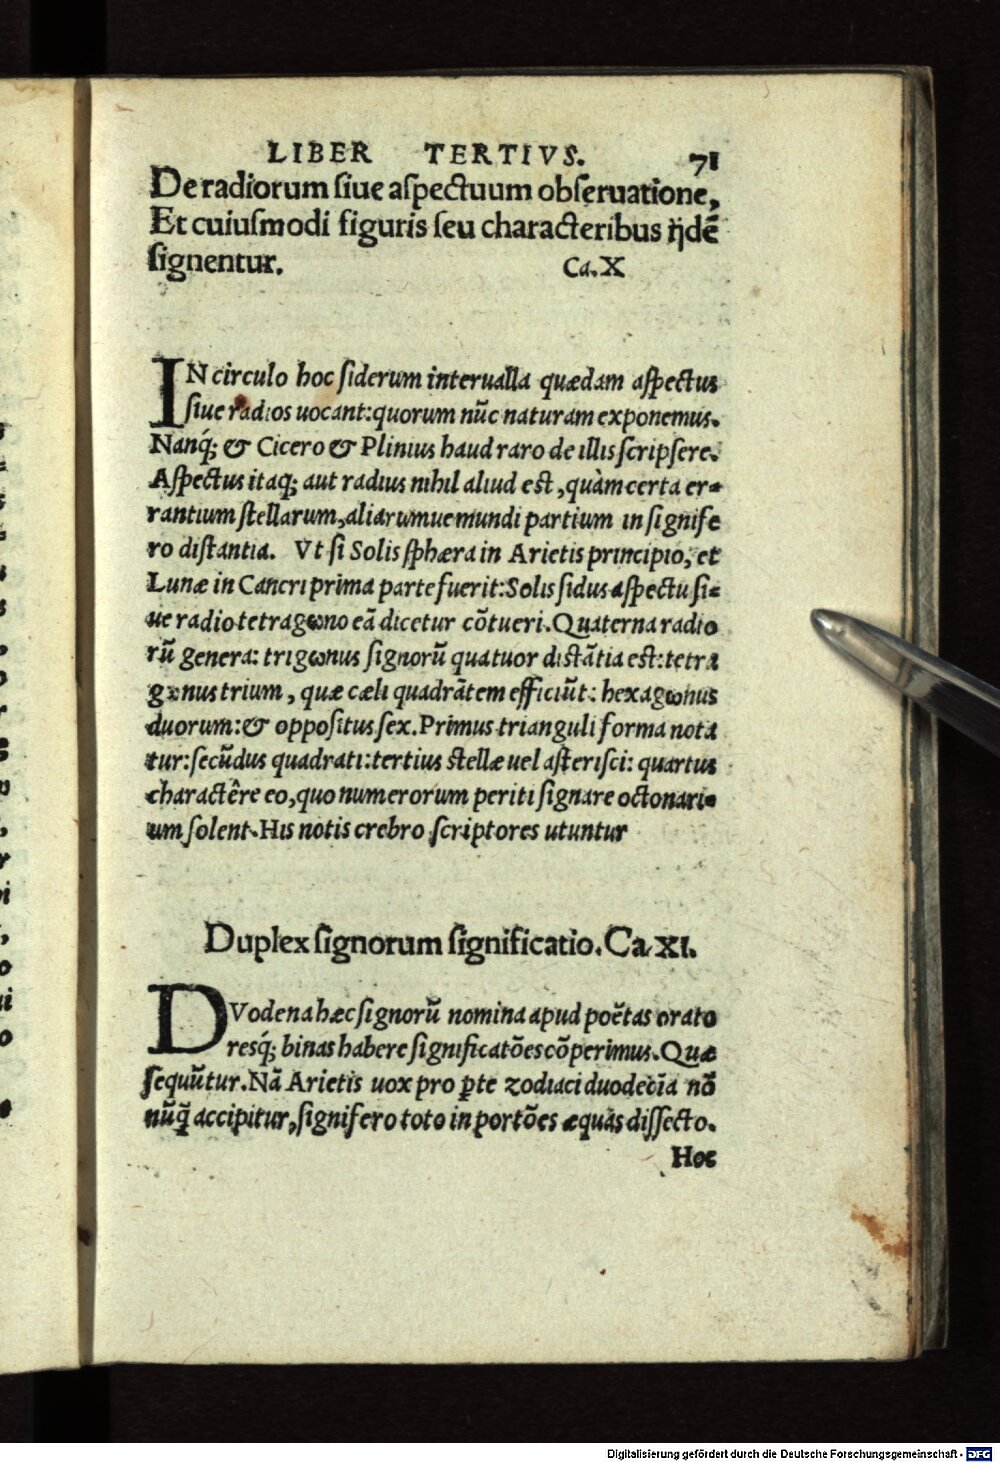 LIBER TERTIVS. 71
De radiorum siue aspectuum obseruatione,
Et cuiusmodi figuris seu characteribus ijdē
signentur. Ca. X
IN circulo hoc siderum interualla quædam aspectus
siue radios uocant: quorum nūc naturam exponemus.
Nanq́; & Cicero & Plinius haud raro de illis scripsere.
Aspectus itaq; aut radius nihil aliud est, quàm certa er-
rantium stellarum, aliarumue mundi partium in signife
ro distantia. Vt si Solis sphæra in Arietis principio, et
Lunæ in Cancri prima parte fuerit: Solis sidus aspectu si-
ue radio tetragωno eā dicetur cōtueri. Quaterna radio
rū genera: trigωnus signorū quatuor distātia est: tetra
gωnus trium, quæ cæli quadrātem efficiūt: hexagωnus
duorum: & oppositus sex. Primus trianguli forma nota
tur: secūdus quadrati: tertius stellæ uel asterisci: quartus
charactêre eo, quo numerorum periti signare octonari-
um solent. His notis crebro scriptores utuntur
Duplex signorum significatio. Ca. XI.
DVodena hæc signorū nomina apud poētas orato
resq́; binas habere significatōes cōperimus. Quæ
sequūtur. Nā Arietis uox pro ꝑte zodiaci duodecīa nō
nūq̄ accipitur, signifero toto in portōes æquas dissecto.
Hoc
Digitalisierung gefördert durch die Deutsche Forschungsgemeinschaft - DFG